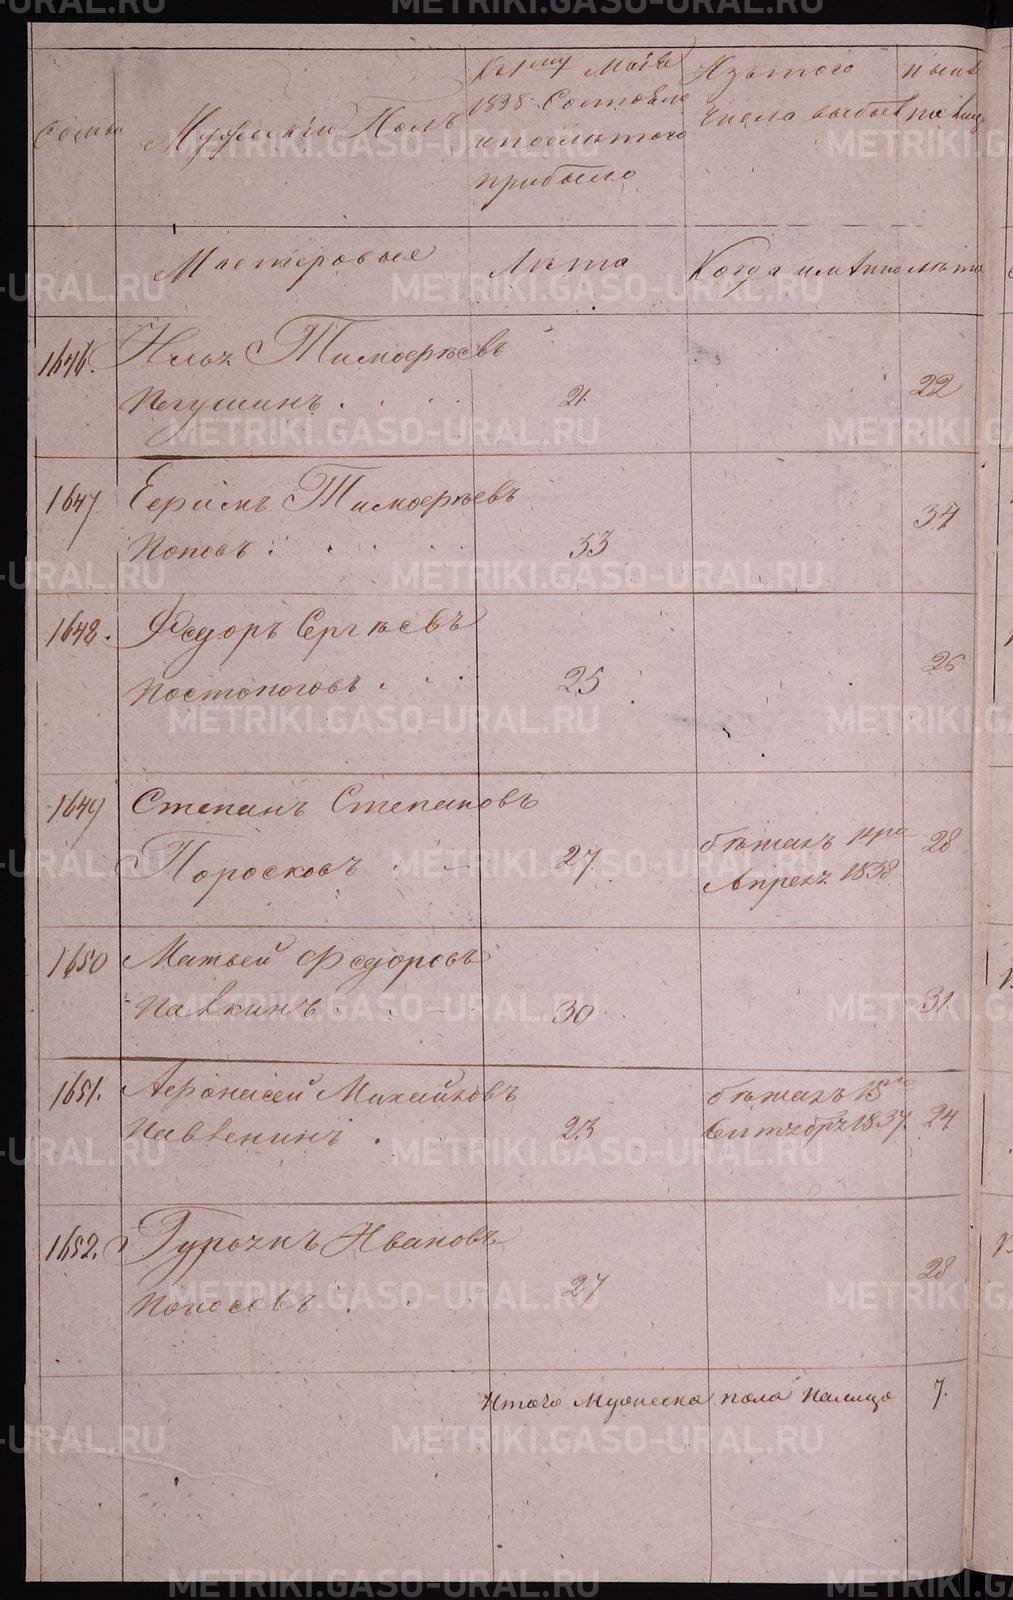 METRIKI.GASO-URAL.RU
Семьи
Мужескій Полъ
Къ 1му Маія
1838. Состояло
и после того
прибыло
Изъ того
Числа выбыло
Ныне
на лицо
Мастеровые
Лѣта
Когда именно
лѣта
1646. Илья Тимофѣевъ
Пегушинъ . . . . 21. 22
1647 Ефимъ Тимофѣевъ
Поповъ . . . . 33 34
1648. Ѳедоръ Сергѣевъ
Постоноговъ . . . 25 26
1649 Степанъ Степановъ
Поросковъ . . 27 бѣжалъ
Апрель 1838 28
1650 Матвей Федоровъ
Павкинъ 30 31.
1651. Афонасей Михайловъ
23 бѣжалъ 15го
Сентябрь 1837. 24
1652. Ивановъ
27 28
Итого Мужеска пола Налицо 7.